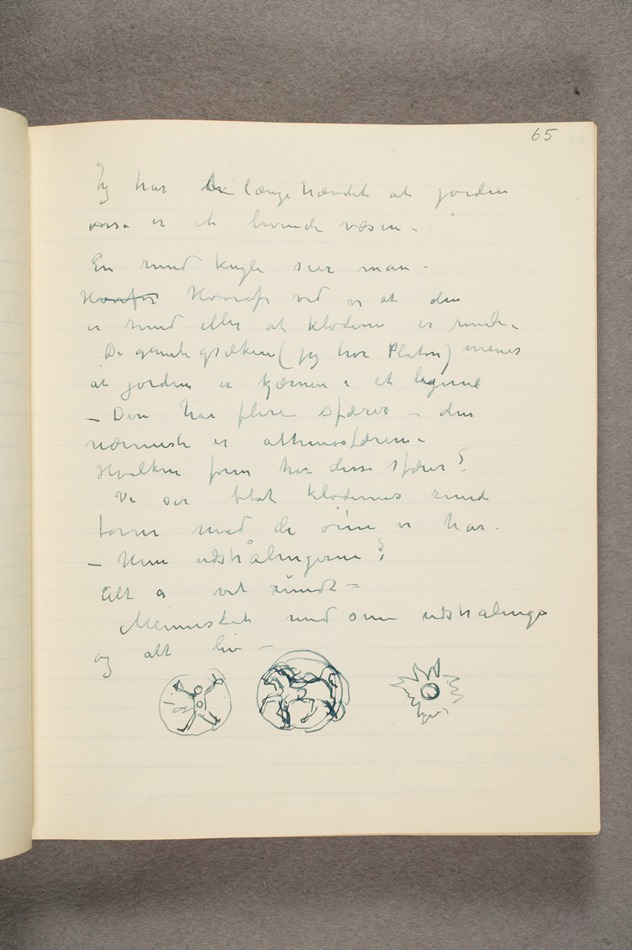 65
Jeg har længe hævdet at jorden
vorse er et levende væsen –
En rund kugle sier man –
Hvorfor Hvorofr ved vi at den
er rund eller at kloderne er runde –
De gamle grækere (jeg tror Platon) menes
at jorden er kjærnen i et legeme
– Den har flere sfærer – den
nærmeste er athmosfæren –
Hvilken form har disse sfærer?
Vi ser blot klodernes runde
former med de öine vi har.
– Men udstrålingerne?
Alt er vel rundt –
Mennesket med sine udstralinger
og alt liv –